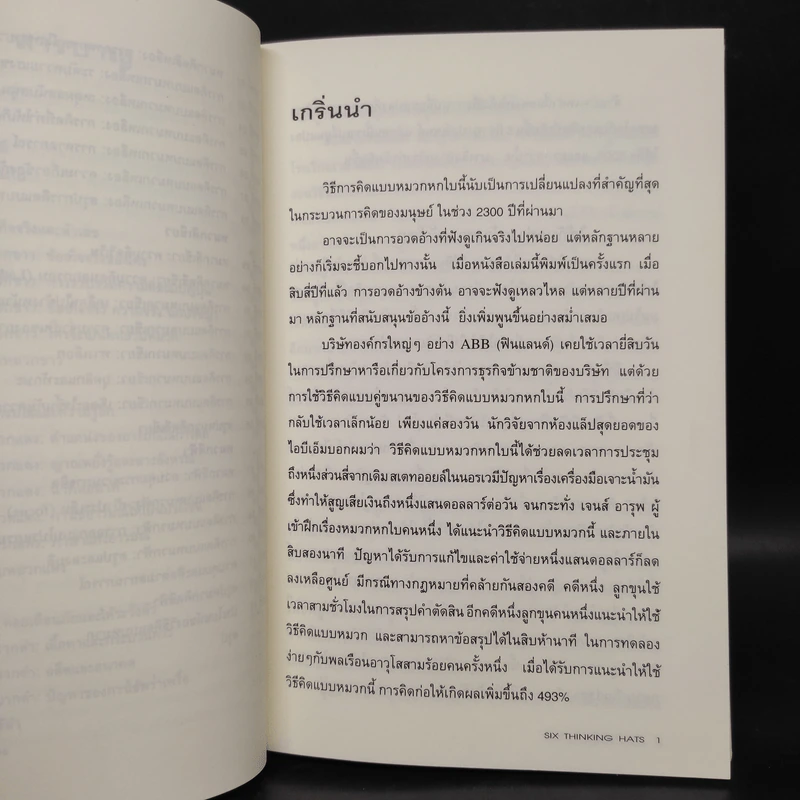 เกริ่นนำ
วิธีการคิดแบบหมวกหกใบนี้นับเป็นการเปลี่ยนแปลงที่สำคัญที่สุด
ในกระบวนการคิดของมนุษย์ ในช่วง 2300 ปีที่ผ่านมา
อาจจะเป็นการอวดอ้างที่ฟังดูเกินจริงไปหน่อย แต่หลักฐานหลาย
อย่างก็เริ่มจะชี้บอกไปทางนั้น เมื่อหนังสือเล่มนี้พิมพ์เป็นครั้งแรก เมื่อ
สิบสี่ปีที่แล้ว การอวดอ้างข้างต้น อาจจะฟังดูเหลวไหล แต่หลายปีที่ผ่าน
มา หลักฐานที่สนับสนุนข้ออ้างนี้ ยิ่งเพิ่มพูนขึ้นอย่างสม่ำเสมอ
บริษัทองค์กรใหญ่ๆ อย่าง ABB (ฟินแลนด์) เคยใช้เวลายี่สิบวัน
ในการปรึกษาหารือเกี่ยวกับโครงการธุรกิจข้ามชาติของบริษัท แต่ด้วย
การใช้วิธีคิดแบบคู่ขนานของวิธีคิดแบบหมวกหกใบนี้ การปรึกษาที่ว่า
กลับใช้เวลาเล็กน้อย เพียงแค่สองวัน นักวิจัยจากห้องแล็ปสุดยอดของ
ไอบีเอ็มบอกผมว่า วิธีคิดแบบหมวกหกใบนี้ได้ช่วยลดเวลาการประชุม
ถึงหนึ่งส่วนสี่จากเดิม สเตทออยล์ในนอรเวมีปัญหาเรื่องเครื่องมือเจาะน้ำมัน
ซึ่งทำให้สูญเสียเงินถึงหนึ่งแสนดอลลาร์ต่อวัน จนกระทั่ง เจนส์ อารุพ ผู้
เข้าฝึกเรื่องหมวกหกใบคนหนึ่ง ได้แนะนำวิธีคิดแบบหมวกนี้ และภายใน
สิบสองนาที ปัญหาได้รับการแก้ไขและค่าใช้จ่ายหนึ่งแสนดอลลาร์ก็ลด
ลงเหลือศูนย์ มีกรณีทางกฎหมายที่คล้ายกันสองคดี คดีหนึ่ง ลูกขุนใช้
เวลาสามชั่วโมงในการสรุปคำตัดสิน อีกคดีหนึ่งลูกขุนคนหนึ่งแนะนำให้ใช้
วิธีคิดแบบหมวก และสามารถหาข้อสรุปได้ในสิบห้านาที ในการทดลอง
ง่ายๆกับพลเรือนอาวุโสสามร้อยคนครั้งหนึ่ง เมื่อได้รับการแนะนำให้ใช้
วิธีคิดแบบหมวกนี้ การคิดก่อให้เกิดผลเพิ่มขึ้นถึง 493%
SIX THINKING HATS 1